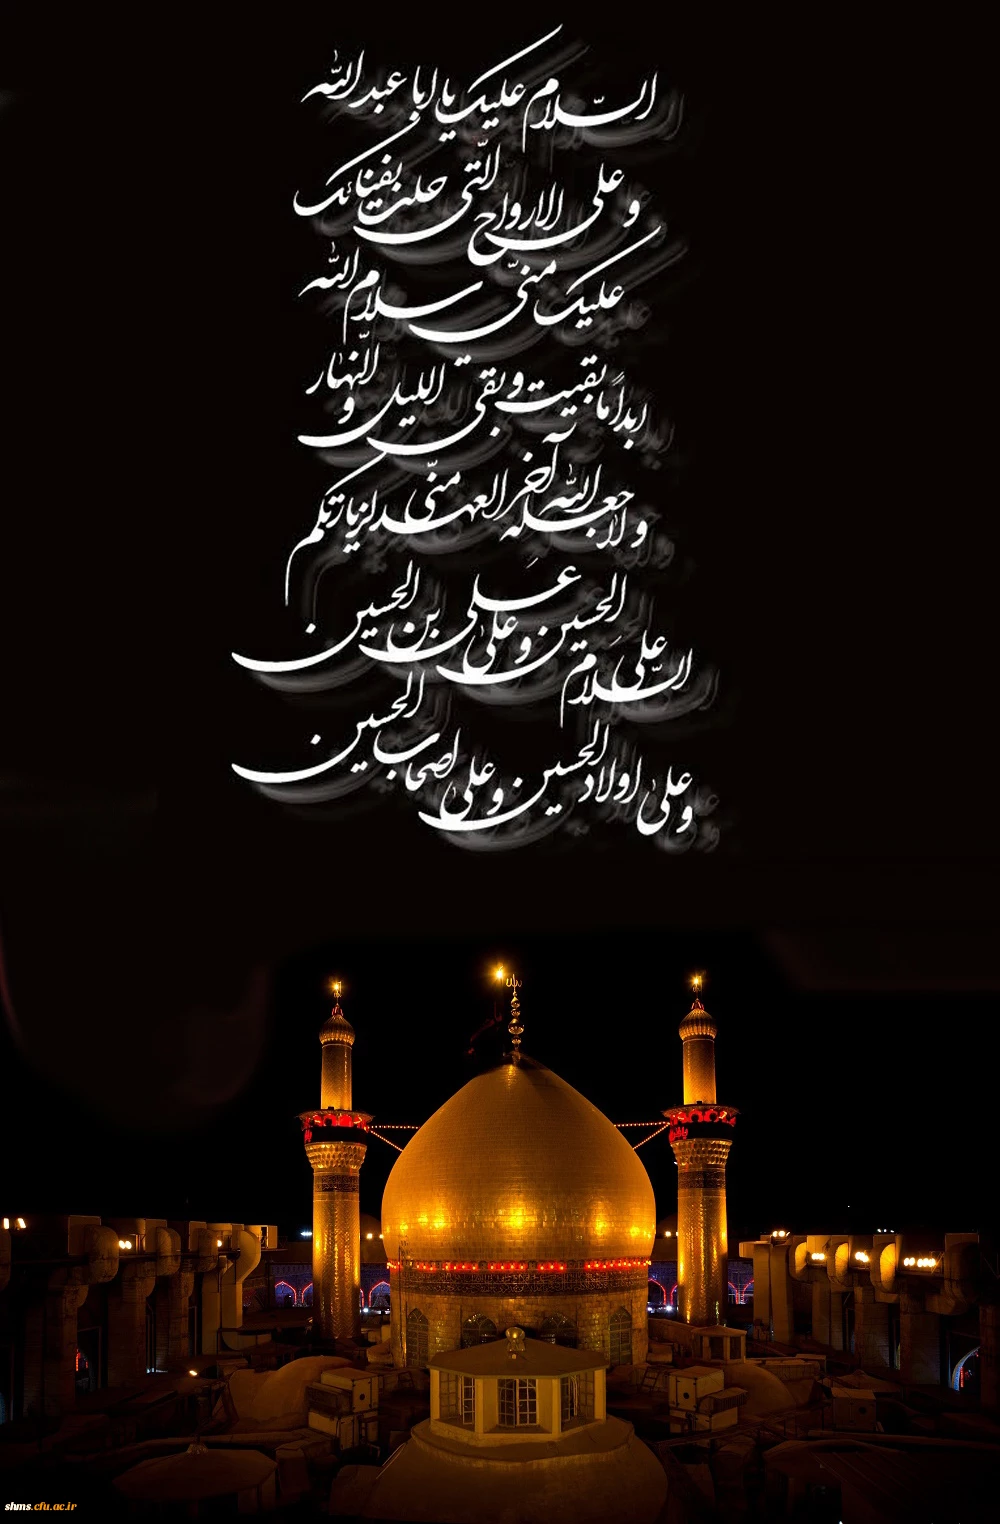 السّلام علیک یا ابا عبدالله
و علی الارواح الّتی حلت بفنائک
علیک منّی سلام الله
ابداً ما بقیت و بقی اللیل و النّهار
و لا جعله الله آخر العهد منّی لزیارتکم
السّلام علی الحسین و علی علی بن الحسین
و علی اولاد الحسین و علی اصحاب الحسین
shms.cfu.ac.ir